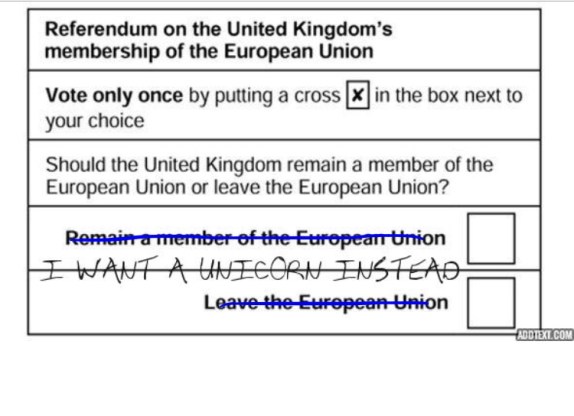 Referendum on the United Kingdom's
membership of the European Union
Vote only once by putting a cross X in the box next to
your choice
Should the United Kingdom remain a member of the
European Union or leave the European Union?
Remain a member of the European Union
I WANT A UNICORN INSTEAD
Leave the European Union
ADDTEXT.COM